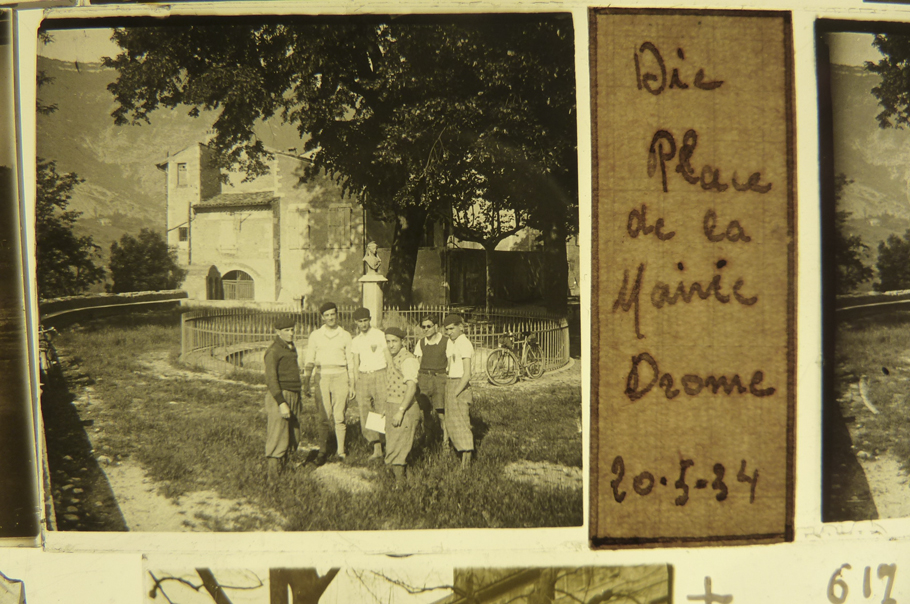 Die
Place
de la
Mairie
Drome
20.5.34
+ 617